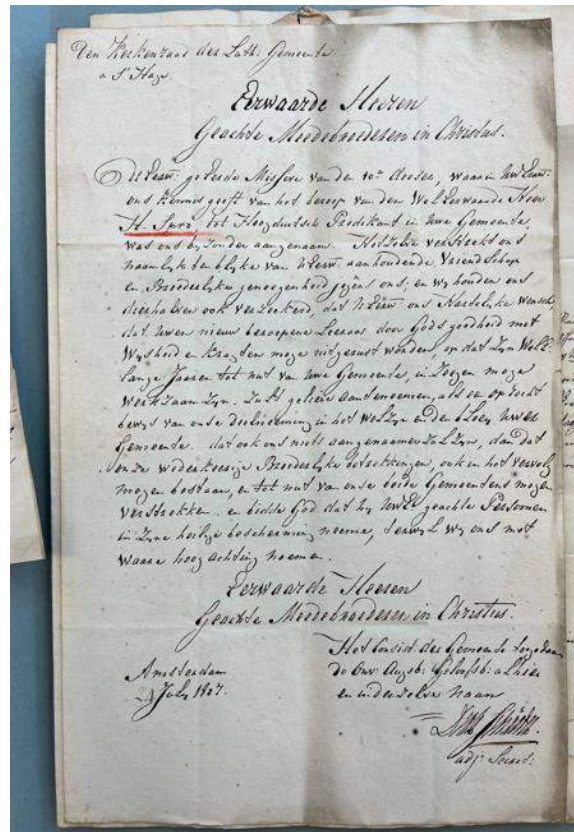 Den Kerkenraad der Luth. Gemeente
a S'Hage.
Eerwaarde Heeren
Geachte Meedebroederen in Christus.
De Eerw: geEerde Missive van den 10e deeser, waarin UwEerw:
ons kennis geeft van het beroep van den WelEerwaarde Heer
H. Sprï, tot Hoogduitsch Predikant in Uwe Gemeente,
was ons byzonder aangenaam. Hetzelve verstrekt ons
naamlyk ten blyke van UEerw: aanhoudende Vriendschap
en Broederlyke genoogenheid jegens ons; en wy houden ons
dierhalven ook verzeekerd, dat UEerw: ons Hartelyke wensch,
dat Uwen nieuw beroepene Leeraar door Gods goedheid met
Wysheid en kragten moge uitgerust worden, op dat Zyn WelE:
lange Jaaren tot nut van Uwe Gemeente, in Zegen moge
werkzaam Zyn. Zult gelieve aanteneemen, als een oprecht
bewys van onse deelneeming in het Welzyn en den bloey Uwer
Gemeente. dat ook ons niets aangenaamer Zal Zyn, dan dat
onze wederkeerige Broederlyke betrekkingen, ook in het vervolg
mogen bestaan, en tot nut van onse beide Gemeentens mogen
verstrekken. en bidde God dat hy UWE geachte Personen
in Zyne heilige bescherming neeme, terwyl wy ons met
waare hoog achting noemen.
Eerwaarde Heeren
Geachte Meedebroederen in Christus.
Het Consist: der Gemeente toegedaan
de Onv: Augsb: Geloofsb: alhier
en in derzelver Naam
Amsterdam
24 July 1807.
adj: Secret: